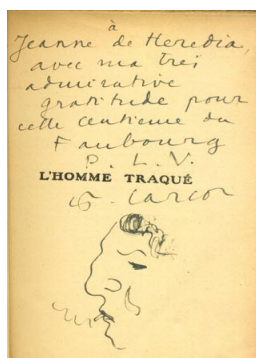 à
Jeanne de Heredia,
avec ma très
admirative
gratitude pour
cette centième du
Faubourg
P. L. V.
L'HOMME TRAQUÉ
F. Carco